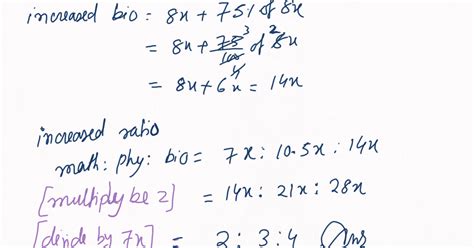 increased bio = 8x + 75% of 8x
= 8x + 75/100 3 4 of 8x 2
= 8x + 6x = 14x
increased ratio
math : phy : bio = 7x : 10.5x : 14x
[multiply be 2] = 14x : 21x : 28x
[devide by 7x] = 2 : 3 : 4 Ans